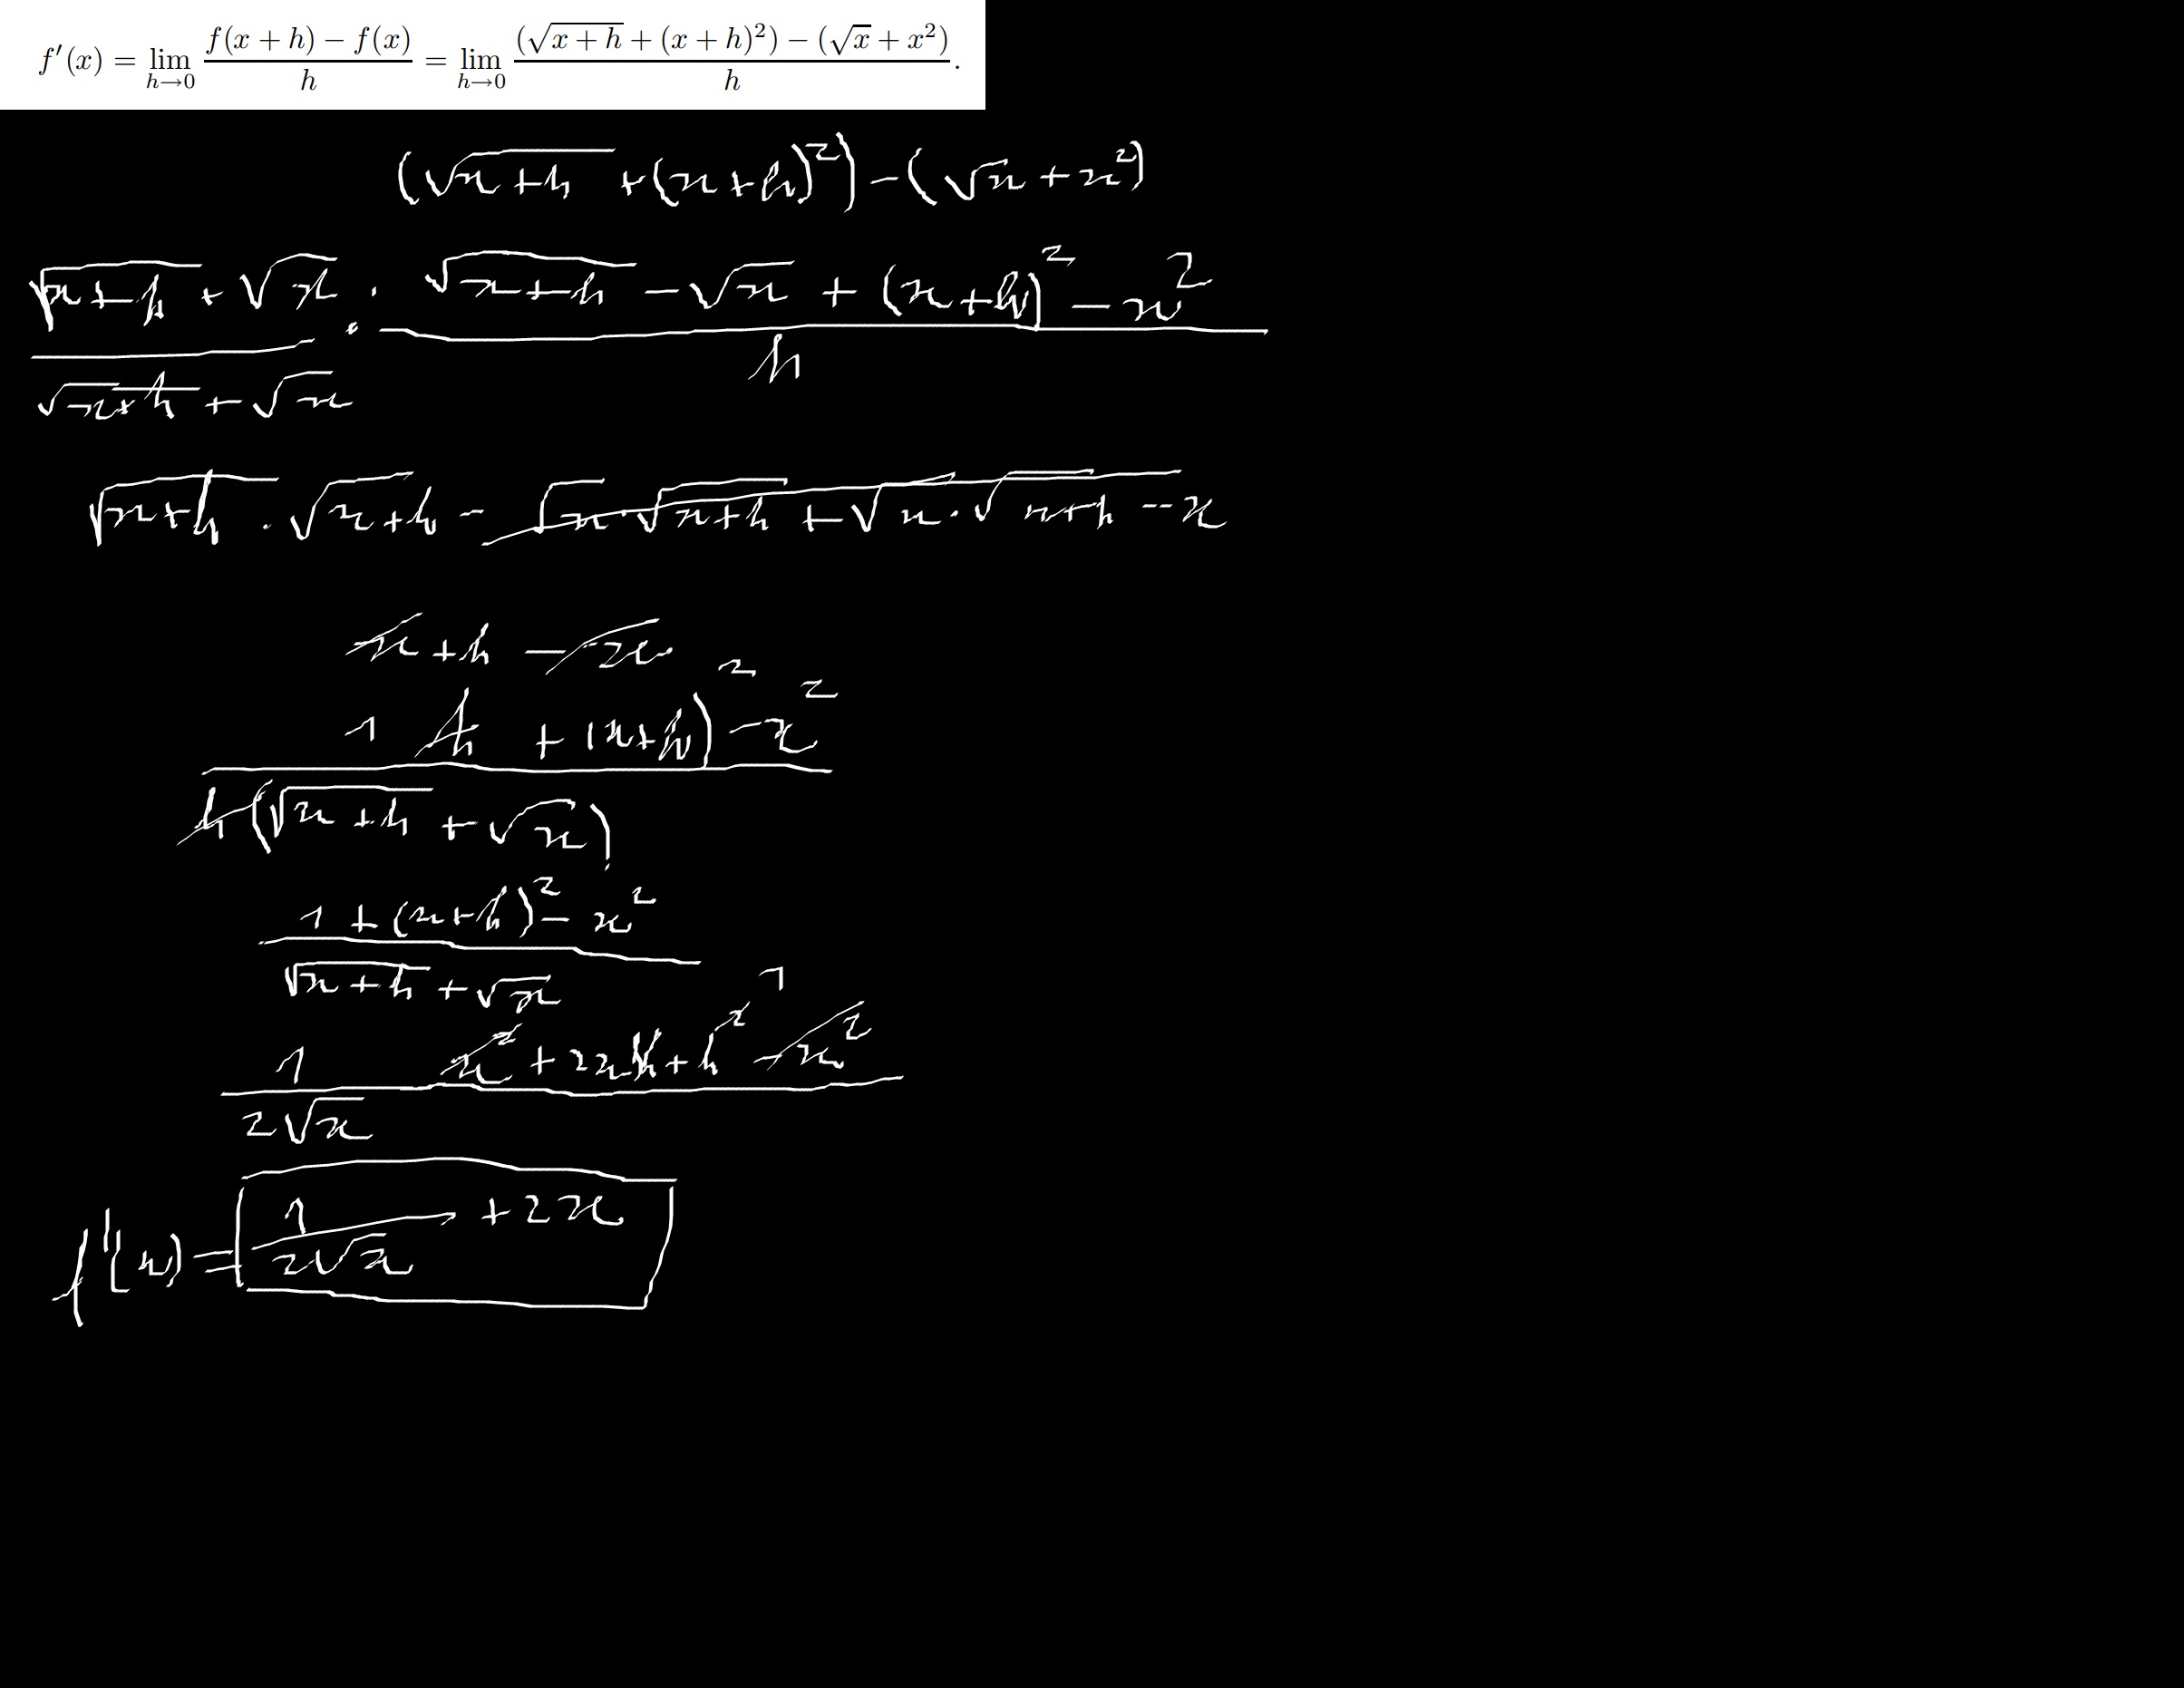 f′(x) = lim h→0 (f(x + h) − f(x))/h = lim h→0 ((√(x + h) + (x + h)²) − (√x + x²))/h.
(√(x+h) + (x+h)²) − (√x + x²)
(√(x+h) + √x)/(√(x+h) + √x) · (√(x+h) − √x + (x+h)² − x²)/h
√(x+h) · √(x+h) − √x · √(x+h) + √x · √(x+h) − x
x + h − x
1 h + (x+h)² − x²
h(√(x+h) + √x)
1 + (x+h)² − x²
√(x+h) + √x
1 x² + 2xh + h² 1 − x²
2√x
f'(x) = 1/(2√x) + 2x